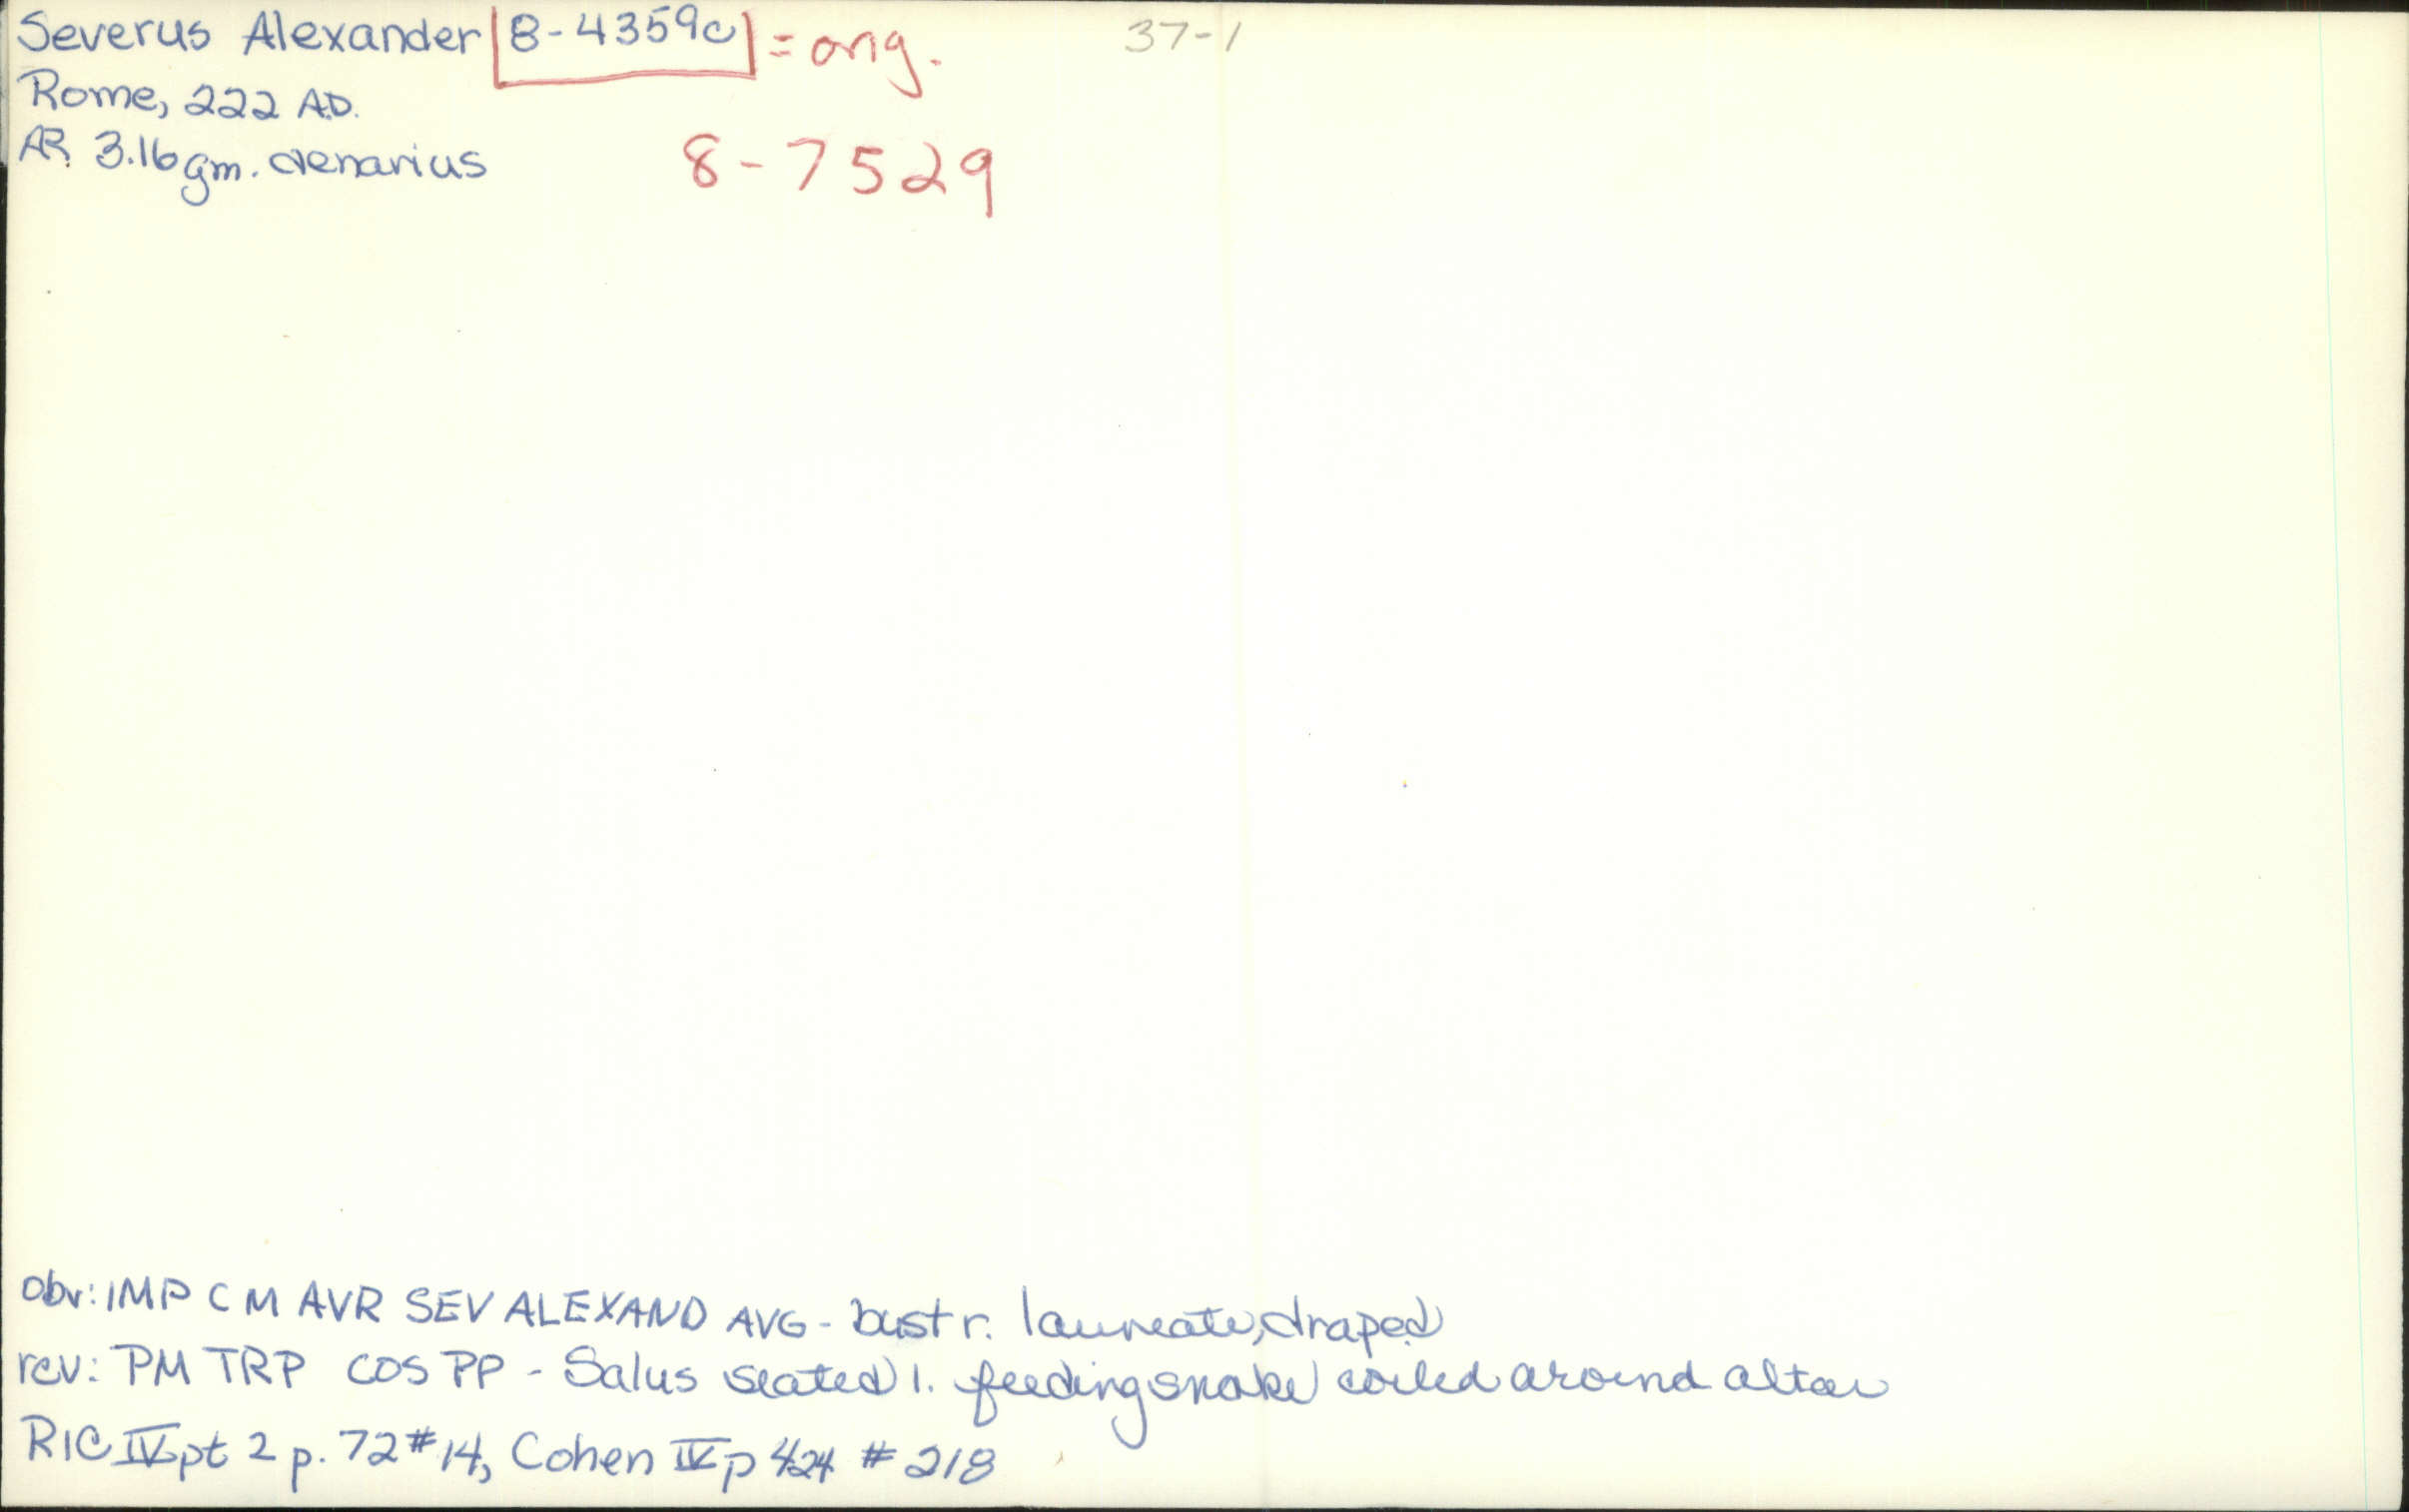 Severus Alexander 8-4359c = orig. 37-1
Rome, 222 A.D.
AR 3.16 gm. denarius 8-7529
Obv: IMP C M AVR SEV ALEXAND AVG - bust r. laureate, draped
rev: PM TRP COS PP - Salus seated l. feeding snake coiled around altar
RIC IV pt 2 p. 72 #14, Cohen IV p 424 # 218